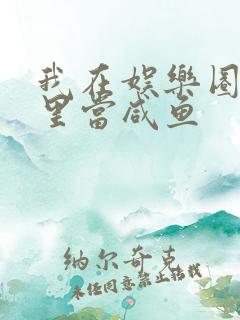 我在娱樂圈
里當咸鱼
纳尔奇克
未经同意禁止转载